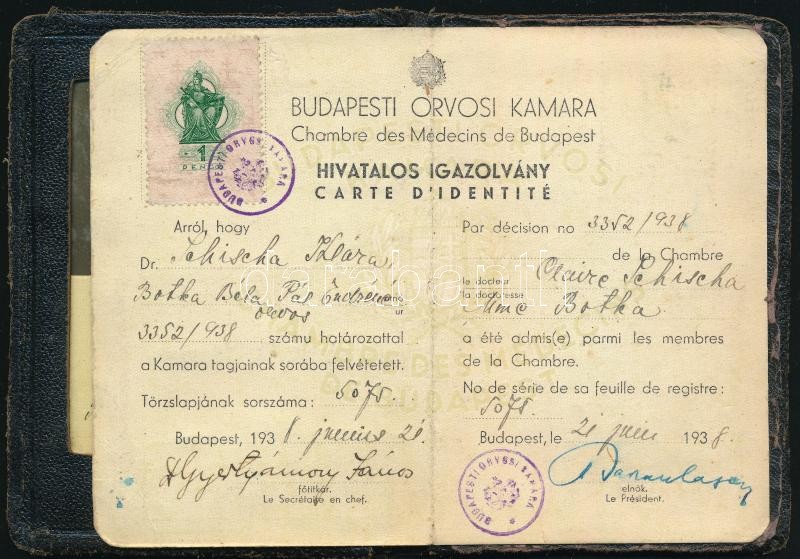 BUDAPESTI ORVOSI KAMARA
Chambre des Médecins de Budapest
HIVATALOS IGAZOLVÁNY
CARTE D'IDENTITÉ
1
PENGŐ
BUDAPESTI ORVOSI KAMARA
Arról, hogy
Dr. Schischa Klára
Botka Béla Pál Endréné
orvos úr
3352/938 számu határozattal
a Kamara tagjainak sorába felvétetett.
Törzslapjának sorszáma: 5075.
Budapest, 1938. junius 21.
Dr Gyertyámosy János
főtitkár.
Le Secrétaire en chef.
Par décision no 3352/938
de la Chambre
le docteur
la doctoresse
Claire Schischa
Mme Botka
a été admis(e) parmi les membres
de la Chambre.
No de série de sa feuille de registre:
5075.
Budapest, le 21 juin 1938.
elnök.
Le Président.
BUDAPESTI ORVOSI KAMARA
darabanth